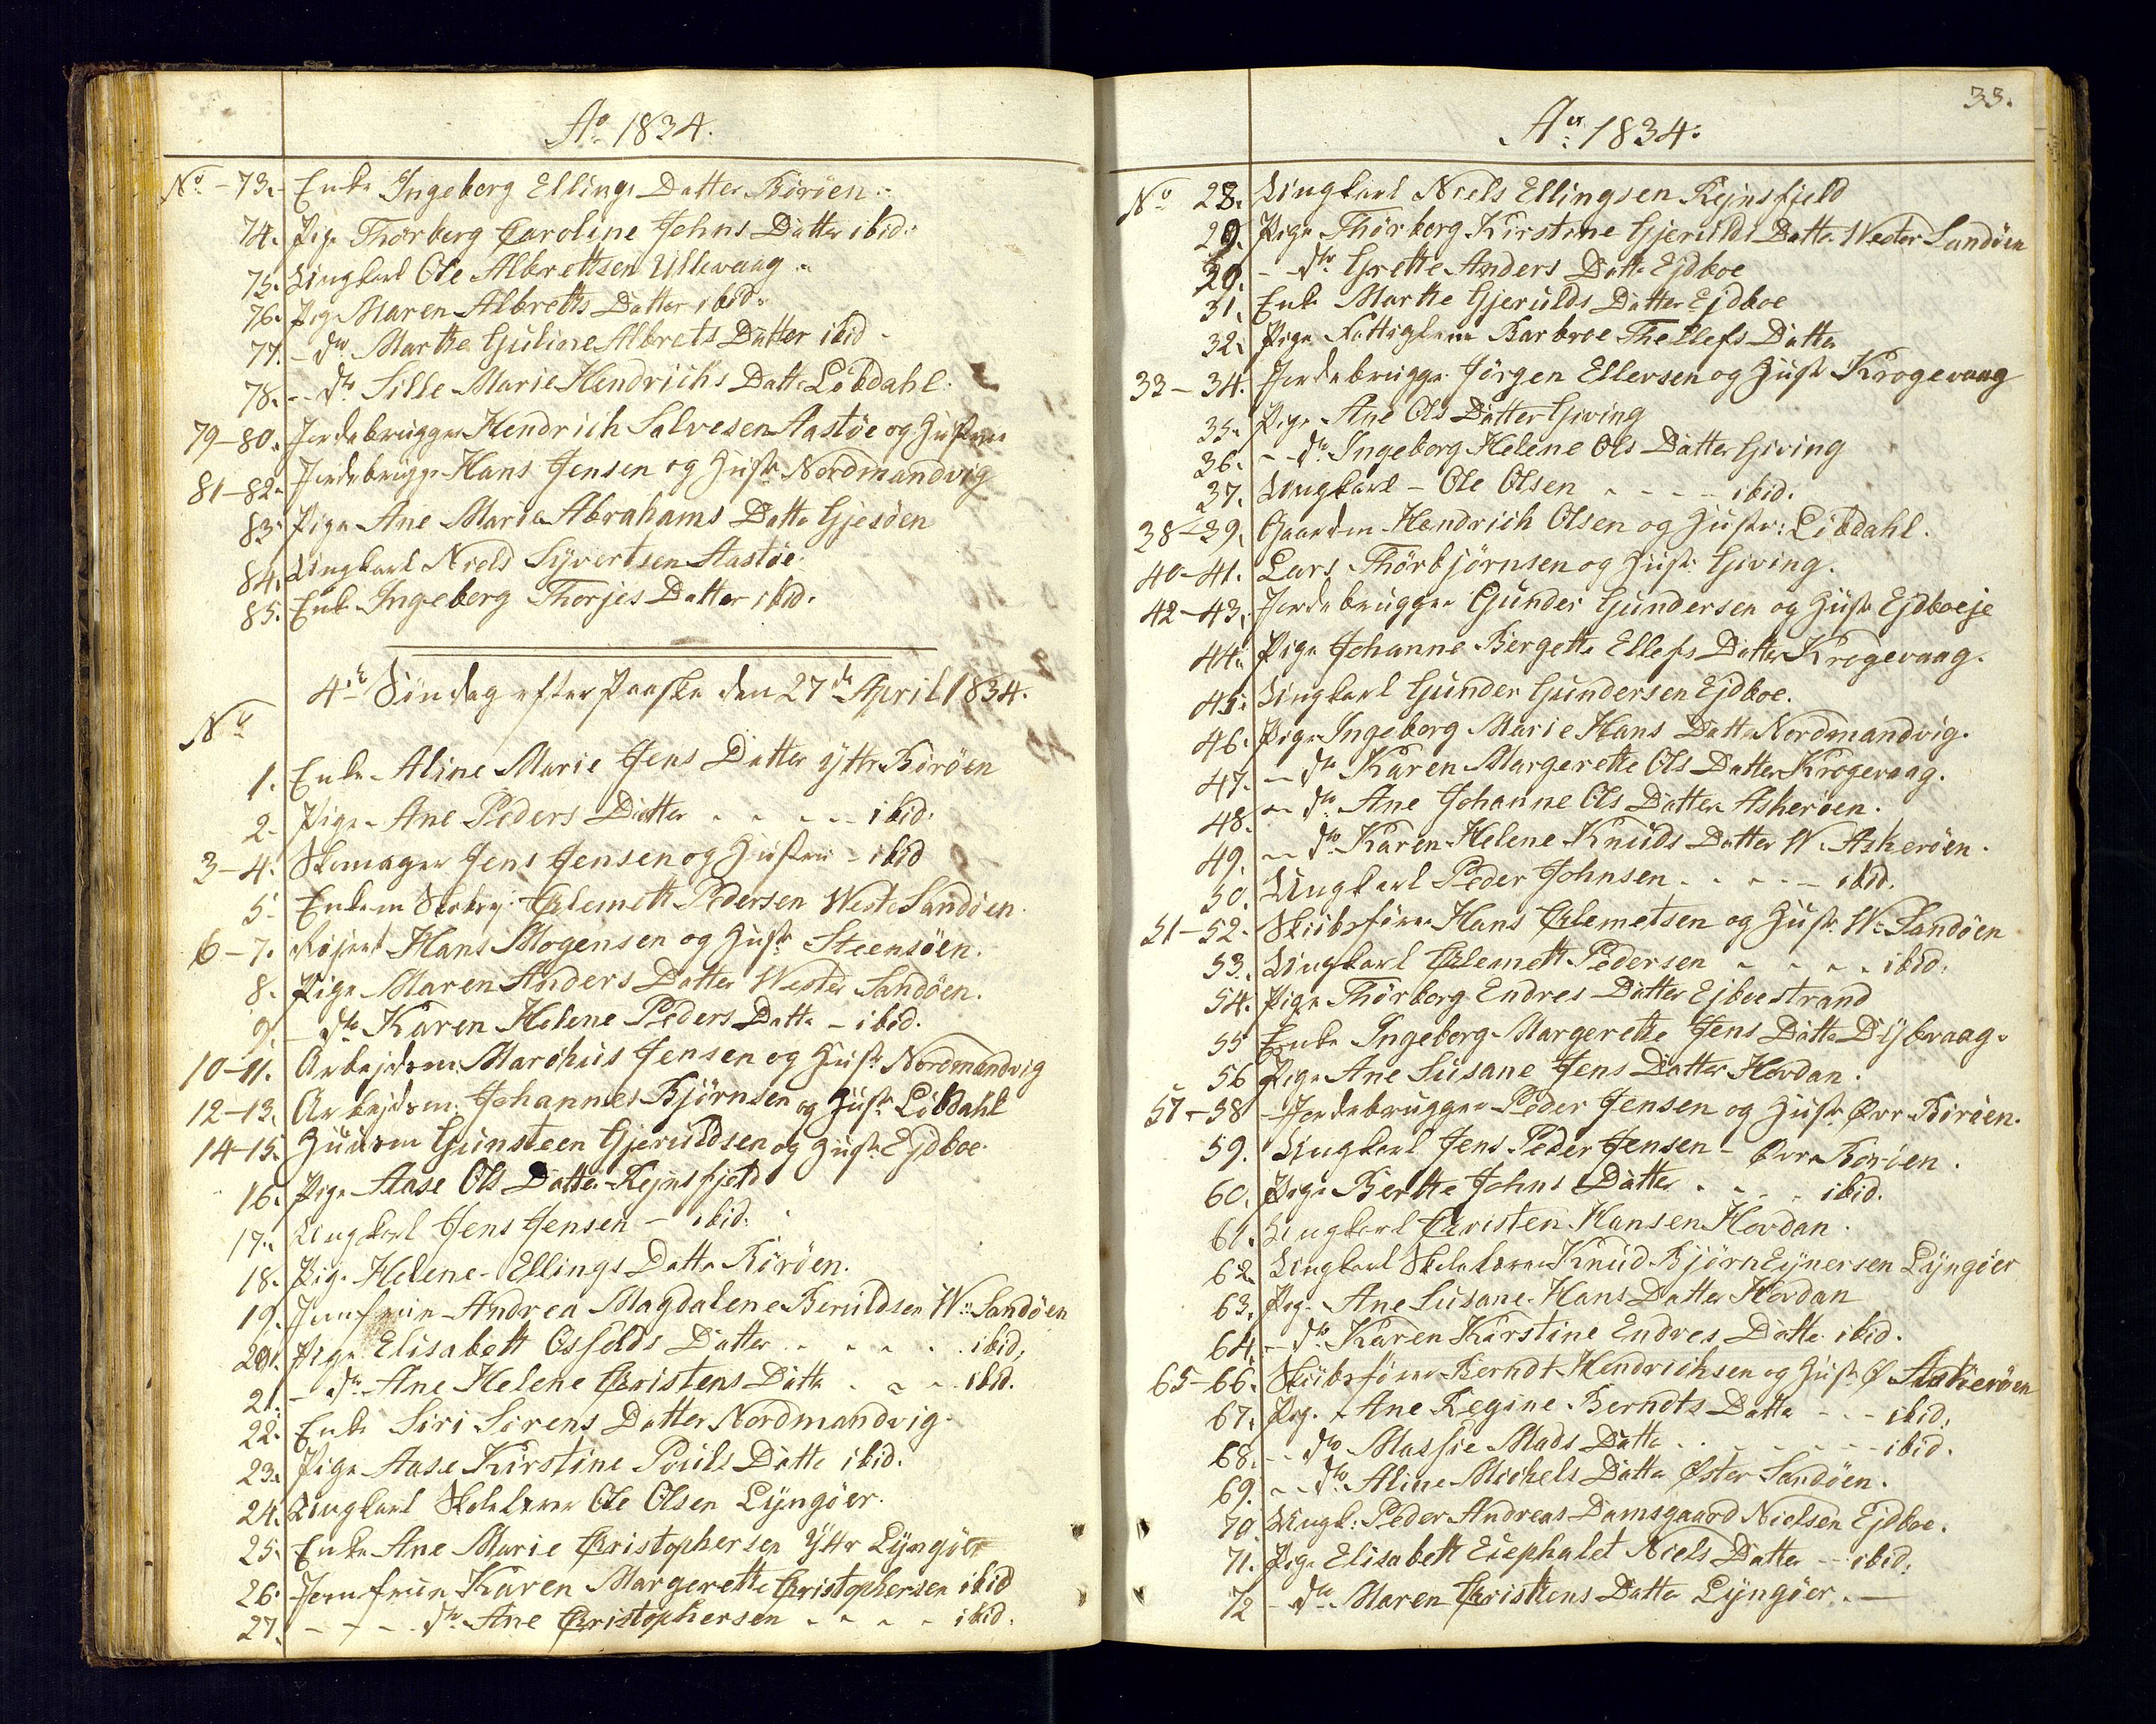 Ao 1834.
No - 73. Enke Ingeborg Ellings Datter Böröen.
74. Pige Thorberg Caroline Johns Datter ibid.
75. Ungkarl Ole Albrettsen Ullevaag
76. Pige Maren Albretts Datter ibid.
77. - do Marthe Guline Albrets Datter ibid
78. - do Sille Marie Hendrichs Datter Löbdahl
79-80. Jordebrugger Hendrich Salvesen Aastöe og Hustrue
81-82. Jordebrugger Hans Jensen og Hustr Nordmandvig
83. Pige Ane Marie Abrahams Datter Gjesöen
84. Ungkarl Niels Syvertsen Aastöe.
85. Enke Ingeborg Thorjes Datter ibid.
4de Söndag efter Paaske den 27de April 1834.
No
1. Enke Aline Marie Jens Datter Yttr Böröen
2. Pige Ane Peders Datter - - - ibid.
3-4. Skomager Jens Jensen og Hustrue - ibid
5. Enkem Clemett Pedersen Weste Sandöen.
6-7. Hans Mogensen og Hustr Steensöen.
8. Pige Maren Anders Datter Wester Sandöen.
9. - do Karen Helene Peders Datter - ibid.
10-11. Arbejdsm. Marchus Jensen og Hustr Nordmandvig
12-13. Arbejdsm. Johannes Björnsen og Hustr Löbdahl
14-15. Huusm Gunsteen Gjeruldsen og Hustr Ejdboe.
16. Pige Aase Ols Datter Rejnsfjeld
17. Ungkarl Jens Jensen - ibid.
18. Pige Helene Ellings Datter Böröen.
19. Jomfrue Andrea Magdalene Beruldsen W: Sandöen
20. Pige Elisabett Osfolds Datter - - - ibid.
21. - do Ane Helene Christens Datter - - ibid.
22. Enke Siri Sörens Datter Nordmandvig.
23. Pige Aase Kirstine Pouls Datter ibid.
24. Ungkarl Skolelærer Ole Olsen Lyngöer.
25. Enke Ane Marie Christophersen Yttr Lyngöer
26. Jomfrue Karen Margerethe Christophersen ibid
27. - - - do Ane Christophersen - - - - ibid.
33.
Ao 1834.
No 28. Ungkarl Niels Ellingsen Rejnsfjeld
29. Pige Thörberg Kirstine Gjerulds Datter Wester Sandöen
30. - - do Grette Anders Datter Ejdboe
31. Enke Marthe Gjerulds Datter Ejdboe
32. Pige Fattiglem Barbroe Thellefs Datter
33-34. Jordebrugger Jörgen Ellevsen og Hustr Krogevaag
35. Pige Ane Ols Datter Giving
36. - - do Ingeborg Helene Ols Datter Giving
37. Ungkarl - Ole Olsen - - - - ibid.
38-39. Gaardm Hendrich Olsen og Hustr: Löbdahl.
40-41. Lars Thörbjörnsen og Hustr Giving.
42-43. Jordebrugger Gunder Gundersen og Hustr Ejdboeje
44. Pige Johanne Bergette Ellefs Datter Krogevaag.
45. Ungkarl Gunder Gundersen Ejdboe.
46. Pige Ingeborg Marie Hans Datter Nordmandvig.
47. - do Karen Margerethe Ols Datter Krogevaag.
48. - do Ane Johanne Ols Datter Askeröen.
49. - - do Karen Helene Knuds Datter W. Askeröen.
50. Ungkarl Peder Johnsen - - - - ibid.
51-52. Skiibsförer Hans Clemetsen og Hustr W: Sandöen
53. Ungkarl Clemett Pedersen - - - - ibid.
54. Pige Thörborg Endres Datter Ejboestrand
55 Enke Ingeborg Margerethe Jens Datter Dybvaag.
56 Pige Ane Susane Jens Datter Hovdan.
57-58 Jordebrugger Peder Jensen og Hustr Övr Böröen.
59. Ungkarl Jens Peder Jensen - Övre Boröen.
60. Pige Berthe Johns Datter - - - ibid.
61. Ungkarl Christen Hansen Hovdan.
62. Ungkarl Skolelærer Knud Björn Ejnersen Lyngöer
63. Pige Ane Susane Hans Datter Hovdan
64. - do Karen Kirstine Endres Datter ibid.
65-66. Skiibsförer Berndt Hendrichsen og Hustr Ö Askeröen
67. Pige Ane Regine Berndts Datter - - - ibid.
68. - - do Massie Mads Datter - - - - - ibid.
69. - - do Aline Michels Datter Öster Sandöen.
70. Ungk: Peder Andreas Damsgaard Nielsen Ejdboe.
71. Pige Elisabett Eliephalet Niels Datter - - ibid.
72 - do Maren Christens Datter Lyngöer. -